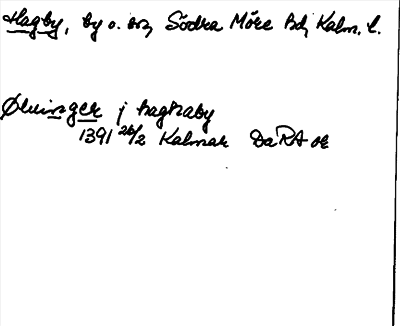 Hagby, by o. sn, Södra Möre hd, Kalm. l.
Øluinger j haghaby
1391 26/2 Kalmar DaRA or